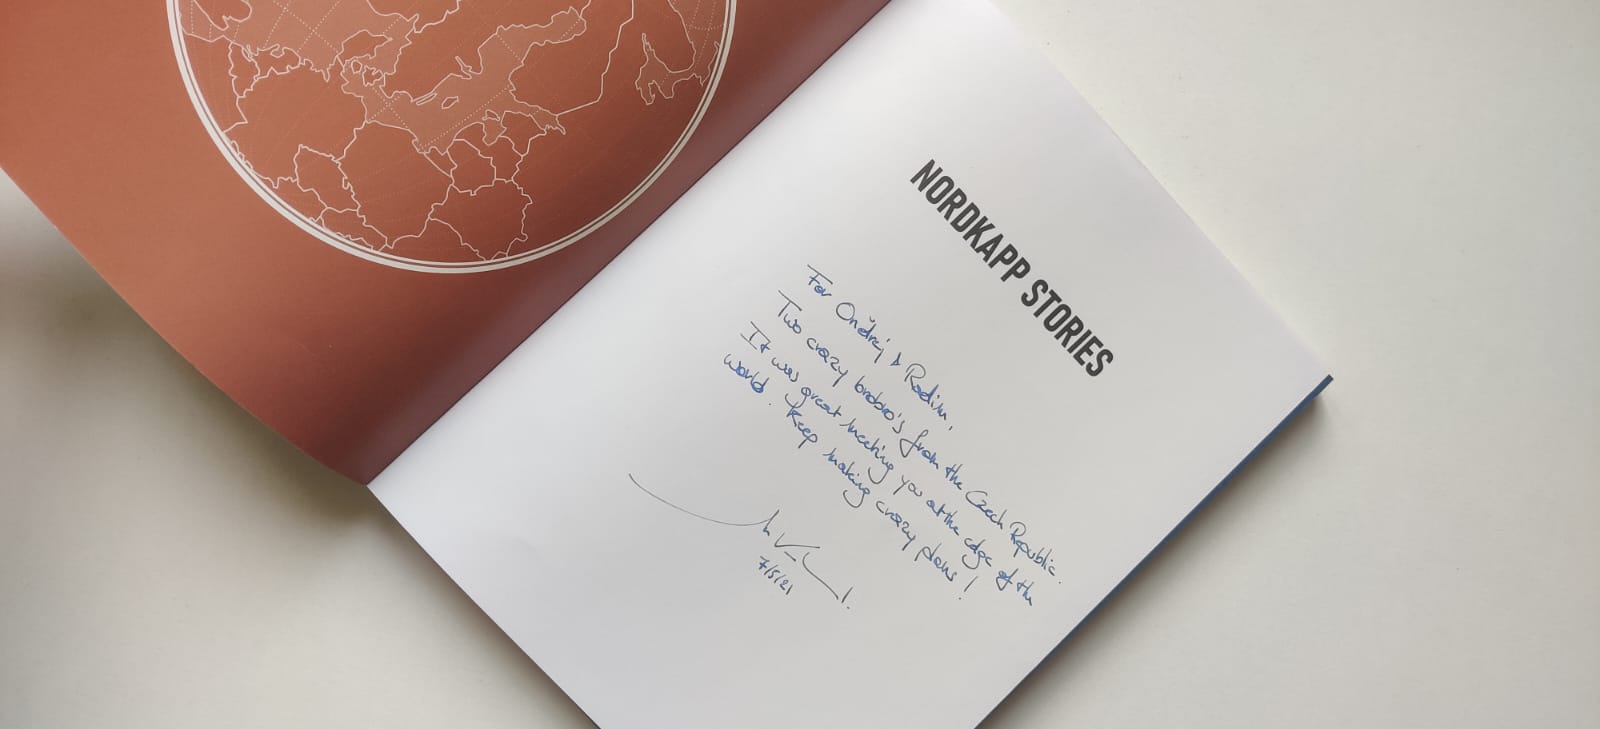 NORDKAPP STORIES
For Ondřej & Radim,
Two crazy brobro's from the Czech Republic.
It was great meeting you at the edge of the
world. Keep making crazy plans!
7/5/21